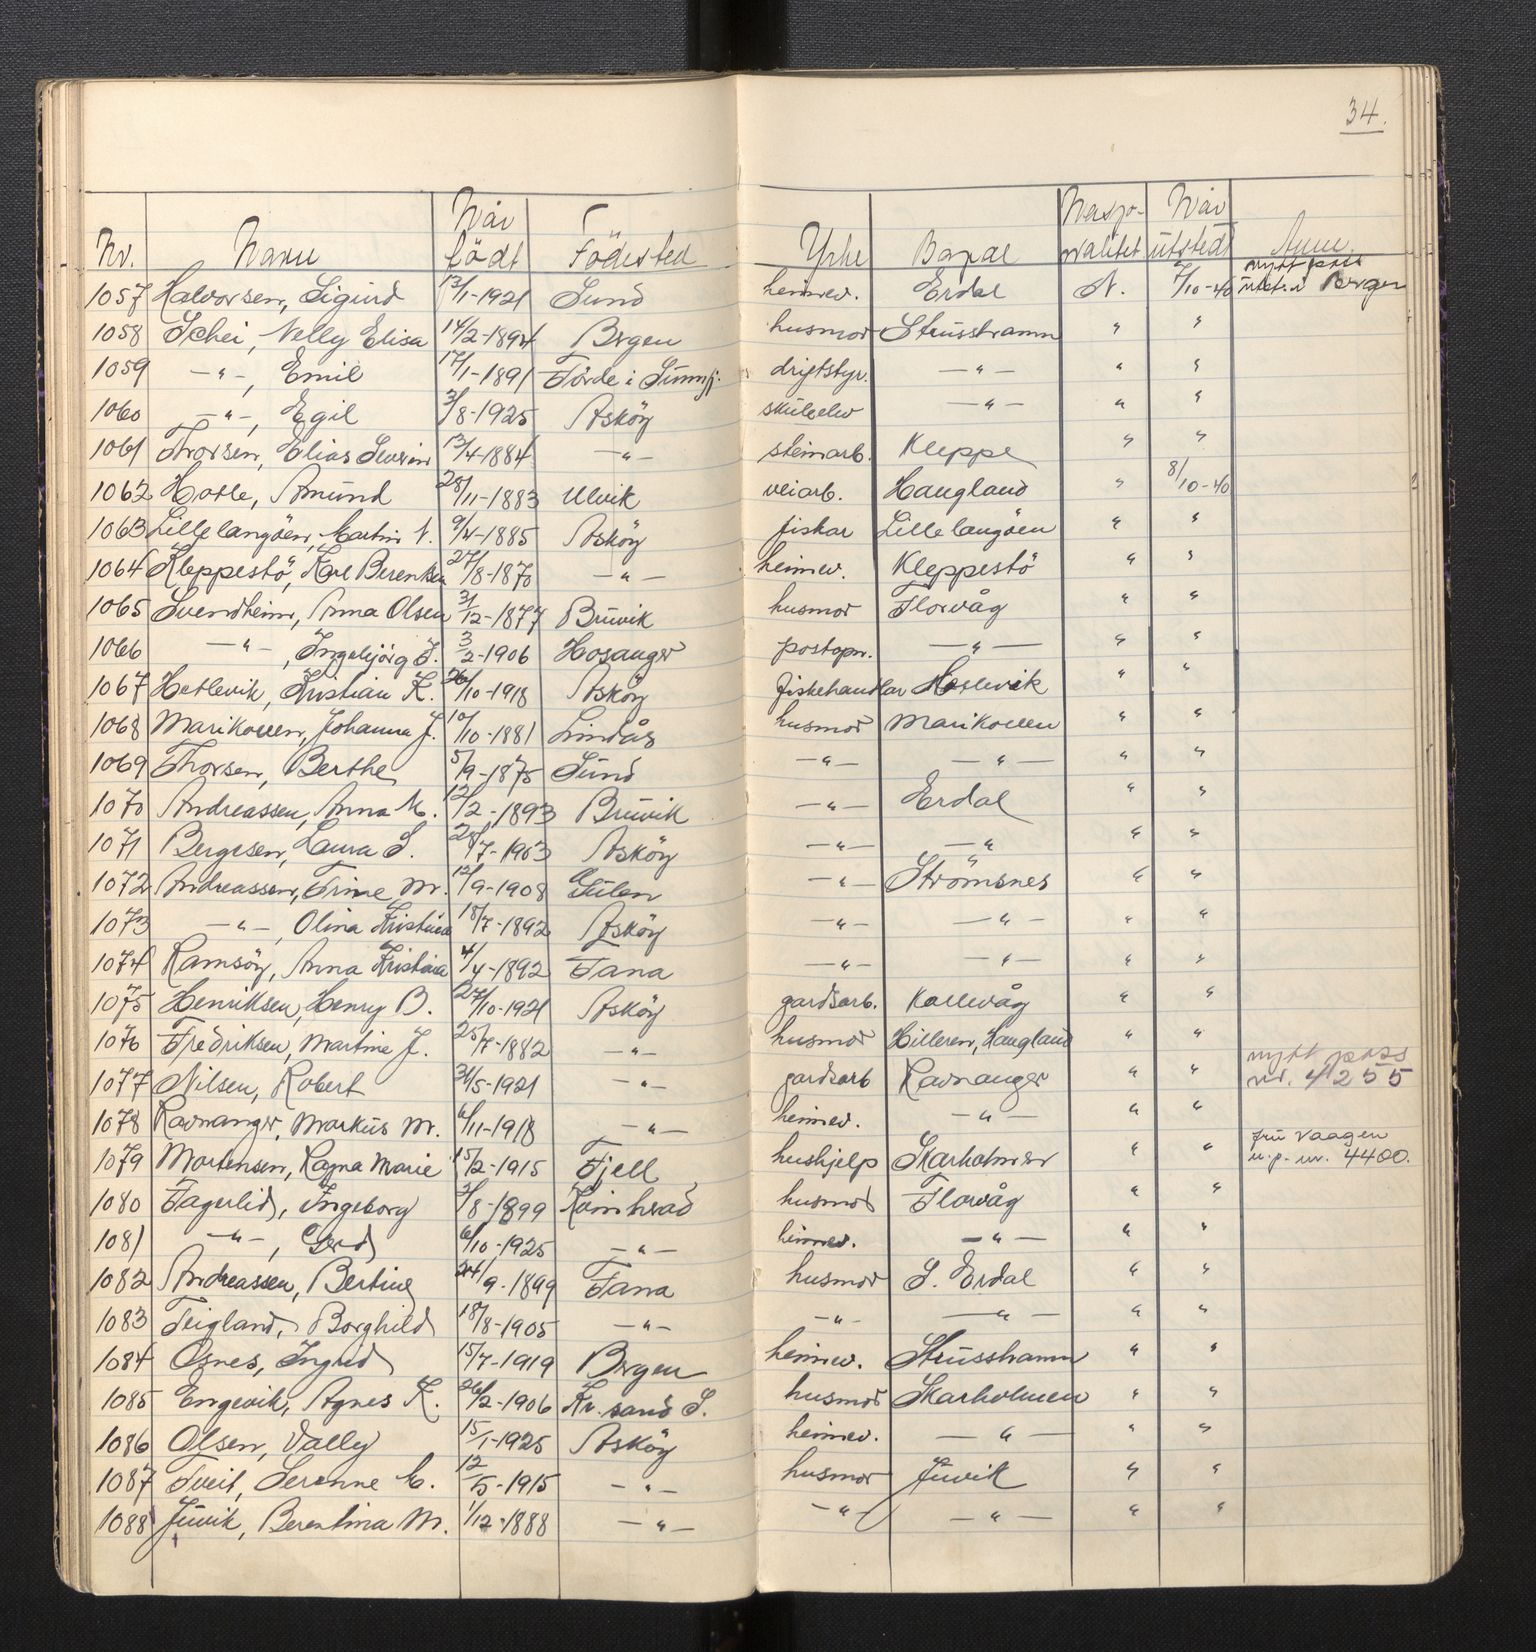 34.
Nr. Navn Når födt Födested Yrke Bopæl Nasjonalitet Når utstedt Anm.
1057 Halvorsen, Sigurd 13/1-1921 Sund heimev. Erdal N. 7/10-40 nytt pass utst. i Bergen
1058 Schei, Nelly Elisa 14/2-1894 Brgen husmor Strusshamn " "
1059 -"-, Emil 17/1-1891 Förde i Sunnfj. driftstyr. -"- " "
1060 -"-, Egil 3/8-1925 Asköy skuleelev -"- " "
1061 Thorsen, Elias Severin 13/4-1884 -"- steinarb. Kleppe " "
1062 Hotle, Amund 28/11-1883 Ulvik veiarb. Haugland " 8/10-40
1063 Lillelangöen, Martin N. 9/4-1885 Asköy fiskar Lillelangöen " "
1064 Kleppestö, Kare Berentsen 27/8-1870 -"- heimev. Kleppestö " "
1065 Svendheim, Anna Olsen 31/12-1877 Bruvik husmor Florvåg " "
1066 -"-, Ingebjörg J. 3/2-1906 Hosanger postopn. -"- " "
1067 Hetlevik, Kristian K. 26/10-1918 Asköy fiskehandlar Hetlevik " "
1068 Marikoven, Johanna J. 10/10-1881 Lindås husmor Marikoven " "
1069 Thorsen, Berthe 5/9-1875 Sund -"- -"- " "
1070 Andreassen, Anna M. 12/2-1893 Bruvik -"- Erdal " "
1071 Bergesen, Laura S. 28/7-1903 Asköy -"- -"- " "
1072 Andreassen, Trine M. 12/9-1908 Gulen -"- Strömsnes " "
1073 -"-, Olina Kristina 18/7-1892 Asköy -"- -"- " "
1074 Ramsöy, Anna Kristina 4/4-1892 Fana -"- -"- " "
1075 Henriksen, Henry B. 27/10-1921 Asköy gardsarb. Kollevåg " "
1076 Fredriksen, Martine J. 25/7-1882 -"- husmor Hilleren, Haugland " "
1077 Nilsen, Robert 31/5-1921 -"- gardsarb Ravnanger " " nytt pass nr. 4255
1078 Ravnanger, Markus M. 6/11-1918 -"- heimev. -"- " "
1079 Mortensen, Ragna Marie 15/2-1915 Fjell hushjelp Skarholmen " " fru Vaagen n.p. nr. 4400.
1080 Fagerlid, Ingeborg 3/8-1899 Kvinherad husmor Florvåg " "
1081 -"-, Gerd 6/10-1925 -"- heimev. -"- " "
1082 Andreassen, Bertine 24/9-1899 Fana husmor S. Erdal " "
1083 Teigland, Borghild 18/8-1905 -"- -"- -"- " "
1084 Osnes, Ingrid 15/7-1919 Brgen heimev. Strusshamn " "
1085 Engevik, Agnes K. 26/2-1906 Kr.sand S. husmor Skarholmen " "
1086 Olsen, Vally 15/1-1925 Asköy heimev. -"- " "
1087 Tveit, Serenne M. 12/5-1915 -"- husmor Juvik " "
1088 Juvik, Berentina M. 1/12-1888 -"- -"- -"- " "